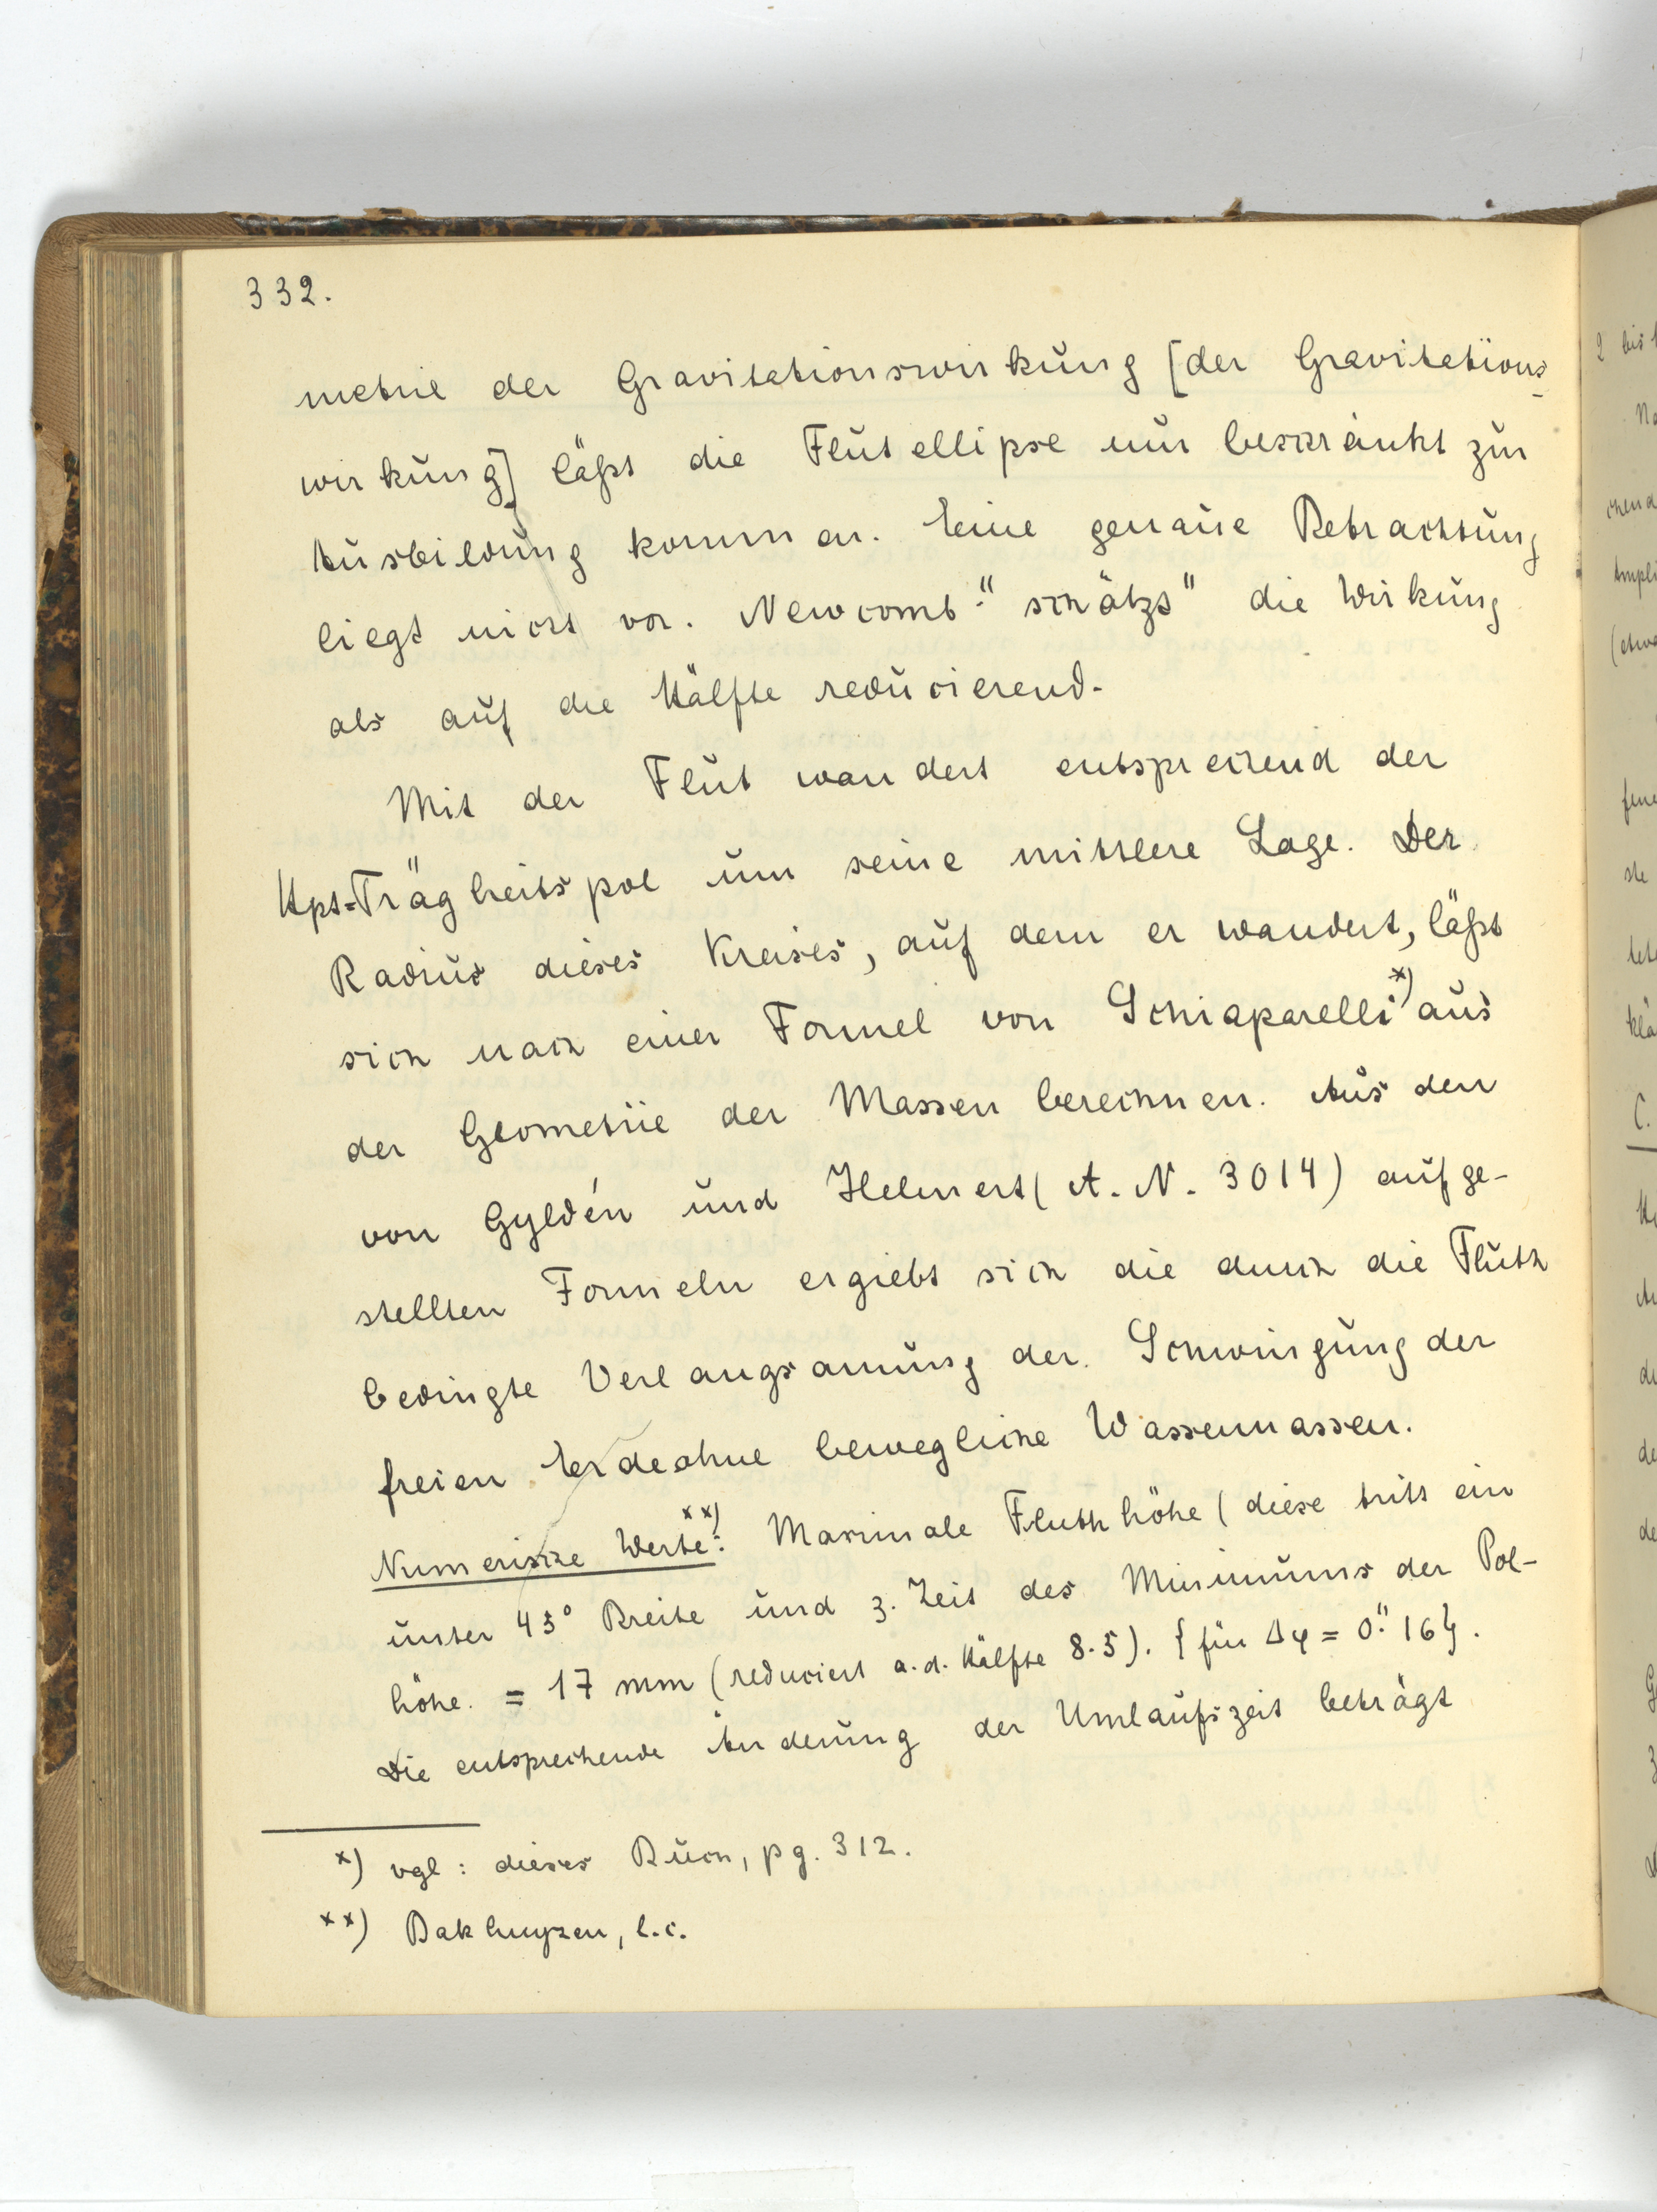 332.
metrie der Gravitationswirkung [der Gravitations-
wirkung] läßt die Flutellipse nur beschränkt zur
Ausbildung kommen. Eine genaue Betrachtung
liegt nicht vor. Newcomb "schätzt" die Wirkung
als auf die Hälfte reducierend.
Mit der Flut wandert entsprechend der
Hpt=Trägheitspol um seine mittlere Lage. Der
Radius dieses Kreises, auf dem er wandert, läßt
sich nach einer Formel von Schiaparelli*) aus
der Geometrie der Massen berechnen. Aus den
von Gyldén und Helmert (A. N. 3014) aufge-
stellten Formeln ergiebt sich die durch die Fluth
bedingte Verlangsamung der Schwingung der
freien Erde ohne bewegliche Wassermassen.
Numerische Werte**): Maximale Fluthhöhe (diese tritt ein
unter 45° Breite und z. Zeit des Minimums der Pol-
höhe. = 17 mm (reduciert a. d. Hälfte 8.5). {für Δφ = 0."16}.
Die entsprechende Änderung der Umlaufszeit beträgt
*) vgl: dieses Buch, pg. 312.
**) Bakhuyzen, l.c.